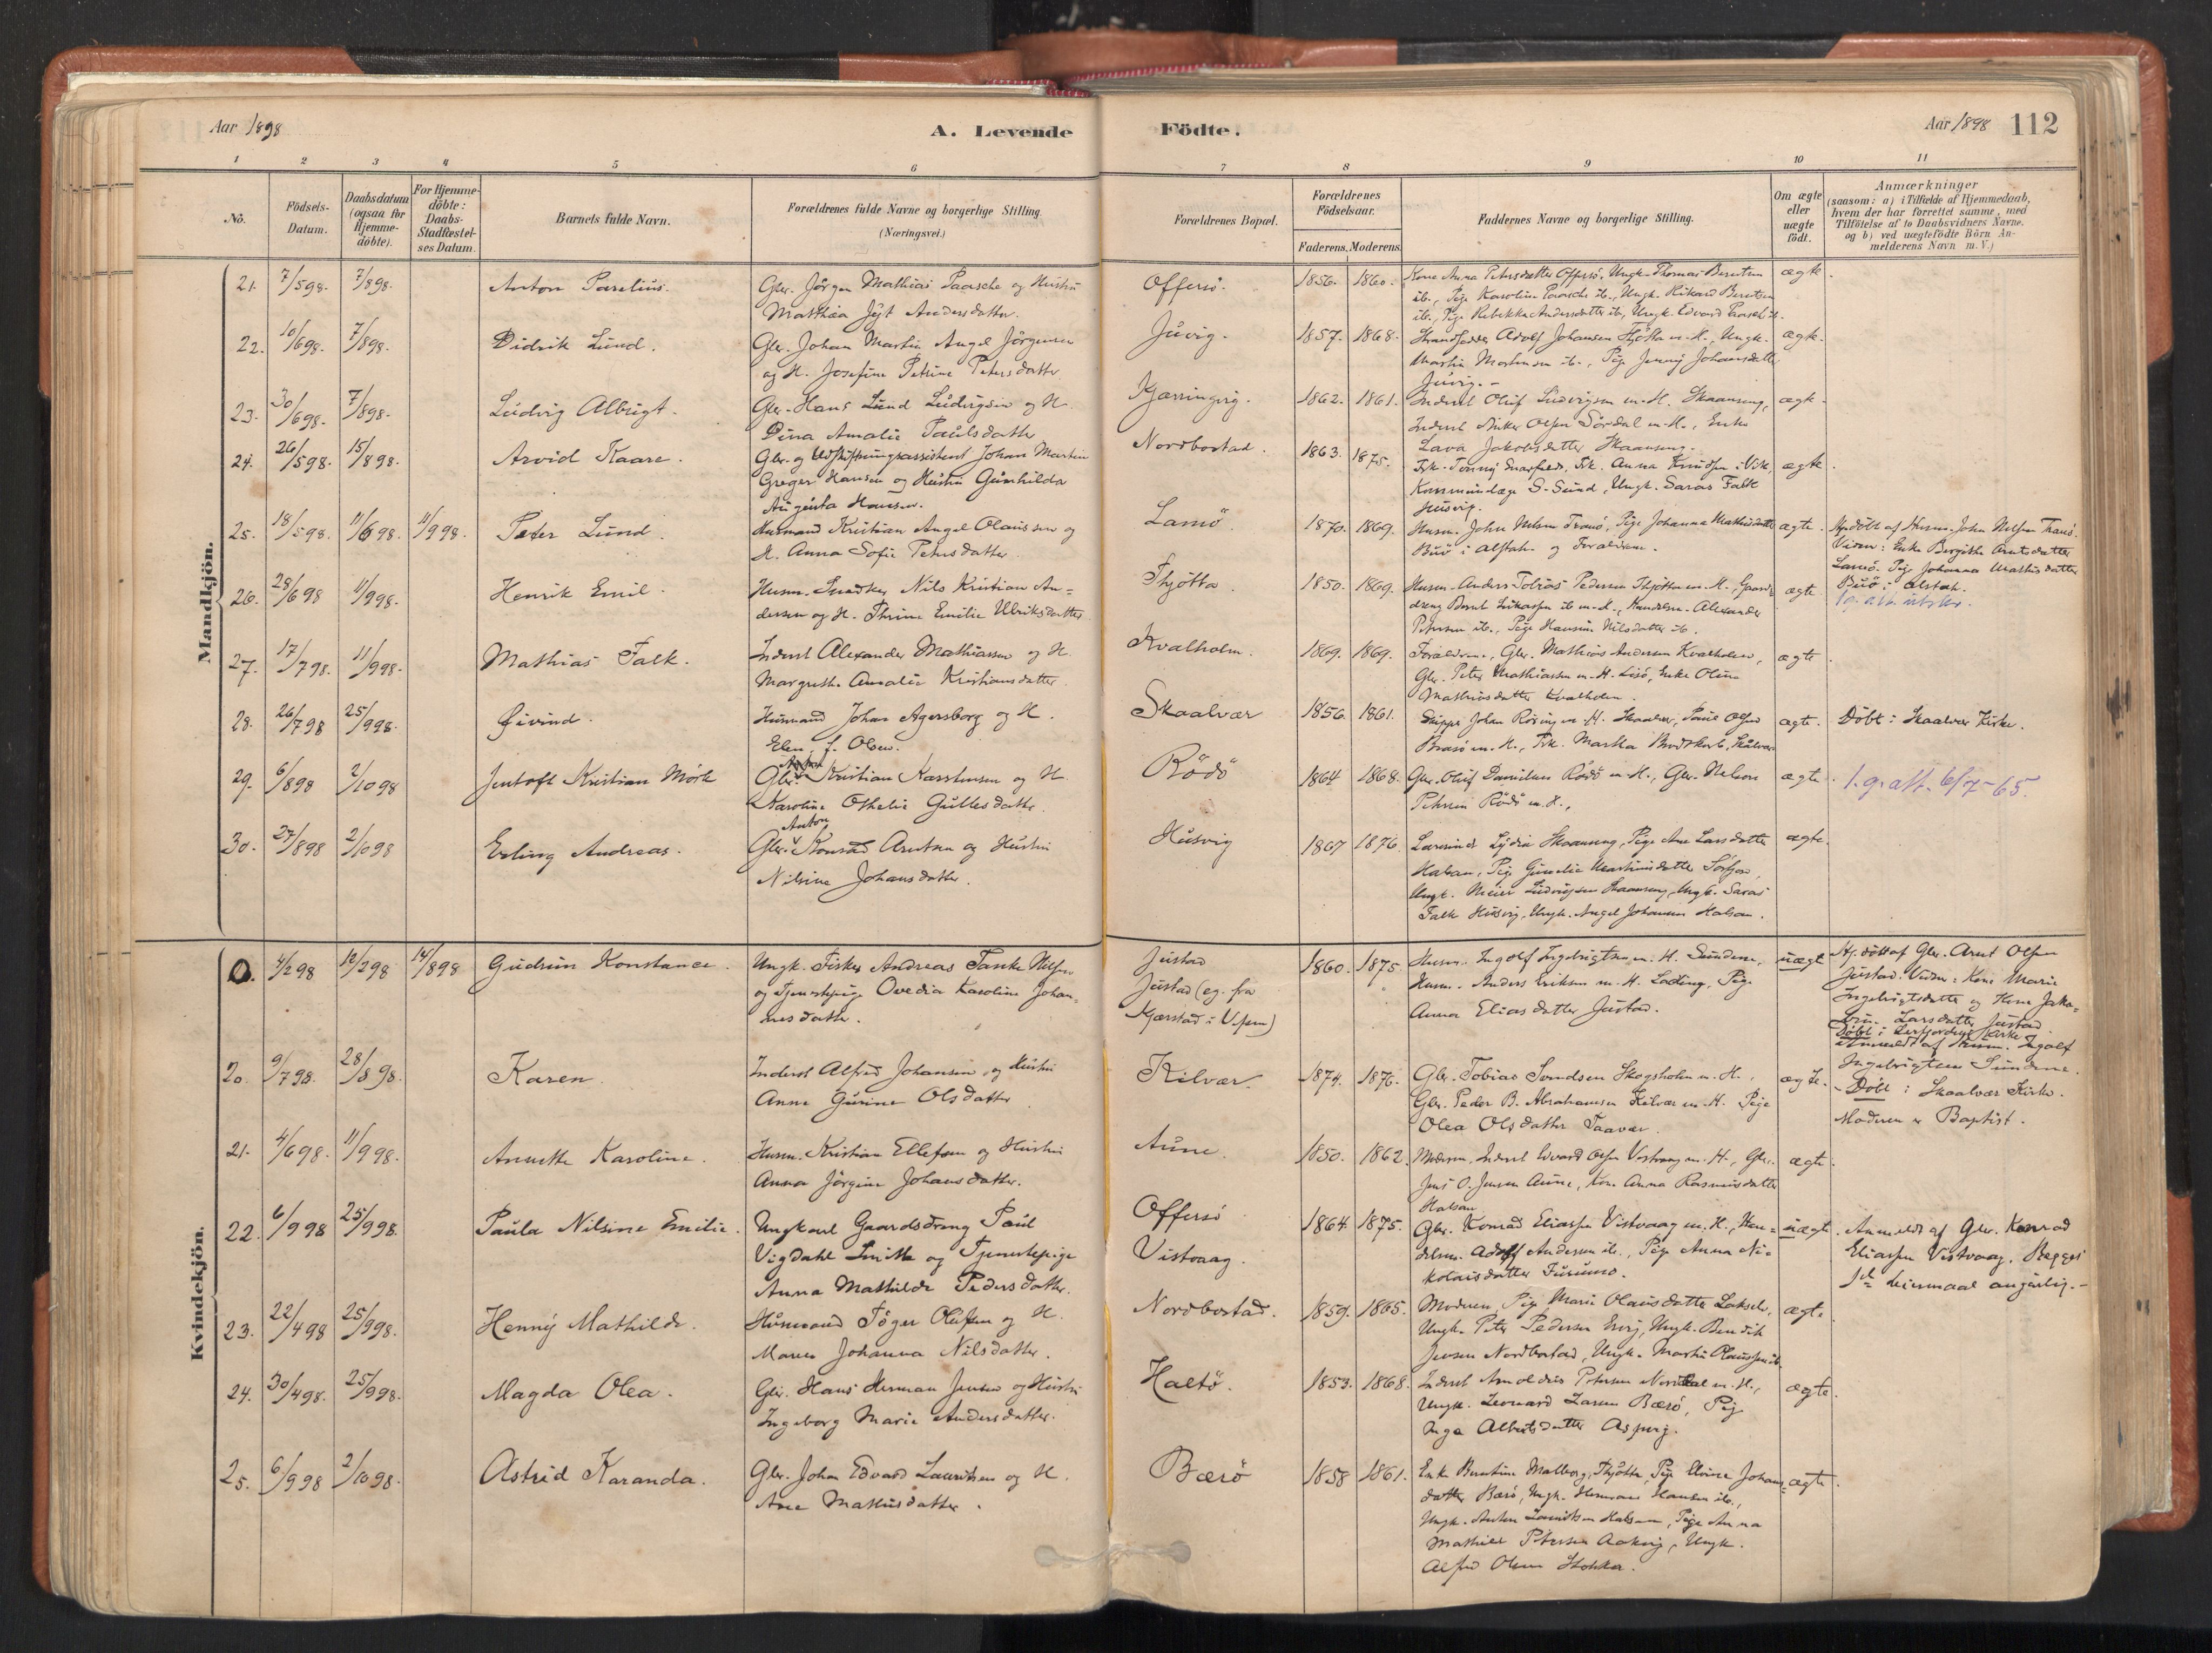 Aar 1898
A. Levende
Födte.
Aar 1898
112
1 2 3 4 5 6
7 8 9 10 11
No.
Födsels-Datum.
Daabsdatum (ogsaa for Hjemme-döbte).
For Hjemme-döbte: Daabs-Stadfæstel-ses Datum.
Barnets fulde Navn.
Forældrenes fulde Navne og borgerlige Stilling.
(Næringsvei.)
Forældrenes Bopæl.
Forældrenes Födselsaar.
Faderens. Moderens.
Faddernes Navne og borgerlige Stilling.
Om ægte eller uægte födt.
Anmærkninger
(saasom: a) i Tilfælde af Hjemmedaab,
hvem der har forrettet samme, med
Tilföielse af to Daabsvidners Navne.
og b) ved uægtefödte Börn An-
melderens Navn m. V.)
Mandkjön.
21. 7/598. 7/898. Anton Parelius. Gbr. Jörgen Mathias Paasche og Hustru
Mathea Jgt Andersdatter.
Offersö. 1856. 1860. Kone Anna Petersdatter Offersö, Ungk. Thomas Berntsen
ib., Pige Karoline Paasche ib., Ungk. Rikard Berntsen
ib., Pige Rebekka Andersdatter ib., Ungk. Edvard Paasche ib.
ægte.
22. 10/698. 7/898. Didrik Lund. Gbr. Johan Martin Angel Jörgensen
og H. Josefine Petrine Petersdatter
Juvig. 1857. 1868. Strandsidder Adolf Johansen Thjötta m. H., Ungk.
Martin Mortensen ib., Pige Jenny Johansdatter
Juvig. -
ægte.
23. 30/698. 7/898. Ludvig Albrigt. Gbr. Hans Lund Ludvigsen og H.
Dina Amalie Paulsdatter
Kjærringvig. 1862. 1861. Inderst Oluf Ludvigsen m. H. Skaanseng,
Inderst Anker Olsen Sördal m. H., Enke
Lava Jakobsdatter Skaanseng.
ægte.
24. 26/598. 15/898. Arvid Kaare. Gbr. og Udskiftningsassistent Johan Martin
Greger Hansen og Hustru Gunhilda
Augusta Hansen.
Nordbostad. 1863. 1875. Frk. Tonny Enarfeldt, Frk. Anna Knudsen i Vik,
Kommunelæge S. Sund, Ungk. Saras Falk
Husvig.
ægte.
25. 18/598. 11/698. 11/998. Peter Lund. Husmand Kristian Angel Olaussen og
H. Anna Sofie Petersdatter.
Lamö. 1870. 1869. Husm. John Nelsen Tranö, Pige Johanna Mathisdatter
Buö i Alstah. og Forældrene.
ægte.
Hj. döbt af Husm. John Nelsen Tranö.
Vidner: Enke Bergithe Arntsdatter
Lamö. Pige Johanna Mathisdatter
Buö i Alstah.
26. 28/698 11/998. Henrik Emil. Husm. Snedker Nils Kristian An-
dersen og H. Thrine Emilie Ulriksdatter
Thjötta 1850. 1869. Husm. Anders Tobias Pedersen Thjötta m. H., Gaards-
dreng Bernt Lukassen ib m. H., Handelsm. Alexander
Petersen ib., Pige Hansine Nilsdatter ib.
ægte
1 g. att. utskr.
27. 17/798. 11/998. Mathias Falk. Inderst Alexander Mathiassen og H.
Margrethe Amalie Kristiansdatter
Kvalholm. 1869. 1869. Forældrene, Gbr. Mathias Andersen Kvalholm,
Gbr. Peter Mathiassen m. H. Lisö, Enke Olina
Mathiasdatter Kvalholm.
ægte
28. 26/798 25/998. Øivind. Husmand Johan Agersborg og H.
Elen, f. Olsen.
Skaalvær 1856. 1861. Skipper Johan Rösing m. H. Skaalvær, Paul Olsen
Brasö m. H., Frk. Martha Brodtkorb, Skålvær
ægte. Döbt i Skaalvær Kirke.
29. 6/898 2/1098 Jentoft Kristian Mörk Gbr. Anton Kristian Karstensen og H.
Karoline Othelie Gullesdatter.
Rödö 1864 1868. Gbr. Oluf Danielsen Rödö m. H., Gbr. Nelson
Petersen Rödö m. H.,
ægte. 1. g. att. 6/7-65.
30. 27/898 2/1098 Erling Andreas. Gbr. Anton Konrad Arntsen og Hustru
Nilsine Johansdatter.
Husvig 1867 1876 Lærerinde Lydia Skaanseng, Pige Ane Larsdatter
Halsan, Pige Gunelie Martinusdatter
Ungk. Meier Ludvigsen Skaanseng, Ungk. Saras
Falk Husvig, Ungk. Angel Johansen Halsan.
ægte.
Kvindekjön.
0. 4/298 12/298 14/898 Gudrun Konstance. Ungk. Fisker Andreas Tanke Nilsen
og Tjenestepige Ovedia Karoline Johan-
nesdatter.
Justad
Justad (eg. fra
Kjærstad i Vefsen)
1860. 1875. Husm. Ingolf Ingebrigtsen m. H. Sundene,
Husm. Anders Eriksen m. H. Lading, Pige
Anna Eliasdatter Justad.
uægte
Hj. döbt af Gbr. Arnt Olsen
Justad. Vidner: Kone Marie
Ingebrigtsdatter og Kone Jako-
bine Larsdatter Justad.
Döbt i Leirfjordens Kirke
Anmeldt af Husm. Ingolf
Ingebrigtsen Sundene.
20. 9/798. 28/898. Karen. Inderst Alfred Johansen og Hustru
Anne Gurine Olsdatter
Kilvær. 1874. 1876. Gbr. Tobias Svendsen Skogsholm m. H.,
Gbr. Peder B. Abrahamsen Kilvær m. H. Pige
Olea Olsdatter Taavær.
ægte. - Döbt i Skaalvær Kirke.
Moderen er Baptist.
21. 4/698. 11/998. Annette Karoline. Husm. Kristian Ellefsen og Hustru
Anna Jörgine Johansdatter.
Aune. 1850. 1862. Moderen, Inderst Edvard Olsen Vistvaag m. H., Gbr.
Jens O. Jensen Aune, Kone Anna Rasmusdatter
Halsan
ægte.
22. 6/998 25/998. Paula Nilsine Emilie. Ungkarl Gaardsdreng Paul
Vigdahl Smith og Tjenestepige
Anna Mathilde Pedersdatter.
Offersö
Vistvaag.
1864 1875. Gbr. Konrad Eliassen Vistvaag m. H., Han-
delsm. Adolf Andersen ib., Pige Anna Ni-
kolaisdatter Furumo.
uægte. Anmeldt af Gbr. Konrad
Eliassen Vistvaag. Begges
1ste Leiermaal angivelig. -
23. 22/498 25/998. Henny Mathilde. Husmand Töger Olufsen og H.
Maren Johanna Nilsdatter.
Nordbostad. 1859. 1865. Moderen, Pige Marie Olausdatter Lakselv,
Ungk. Peter Pedersen Evig, Ungk. Bendik
Jensen Nordbostad, Ungk. Martin Olaussen ib.
ægte
24. 30/498. 25/998. Magda Olea. Gbr. Hans Herman Jensen og Hustru
Ingeborg Marie Andersdatter.
Haltö. 1853. 1868. Inderst Arnoldus Petersen Nordal m. H.,
Ungk. Leonard Larsen Bærö, Pige
Inga Albertsdatter Aspvig.
ægte.
25. 6/998 2/1098. Astrid Karanda. Gbr. Johan Edvard Lauritsen og H.
Ane Mathisdatter.
Bærö 1858 1861. Enke Berntine Malborg, Thjötta, Pige Elvine Johans-
datter Bærö, Ungk. Hermann Hansen ib.,
Ungk. Anton Lauritsen Halsan, Pige Anna
Mathilde Petersen Aakvig, Ungk.
Alfred Olsen Stokka.
ægte.